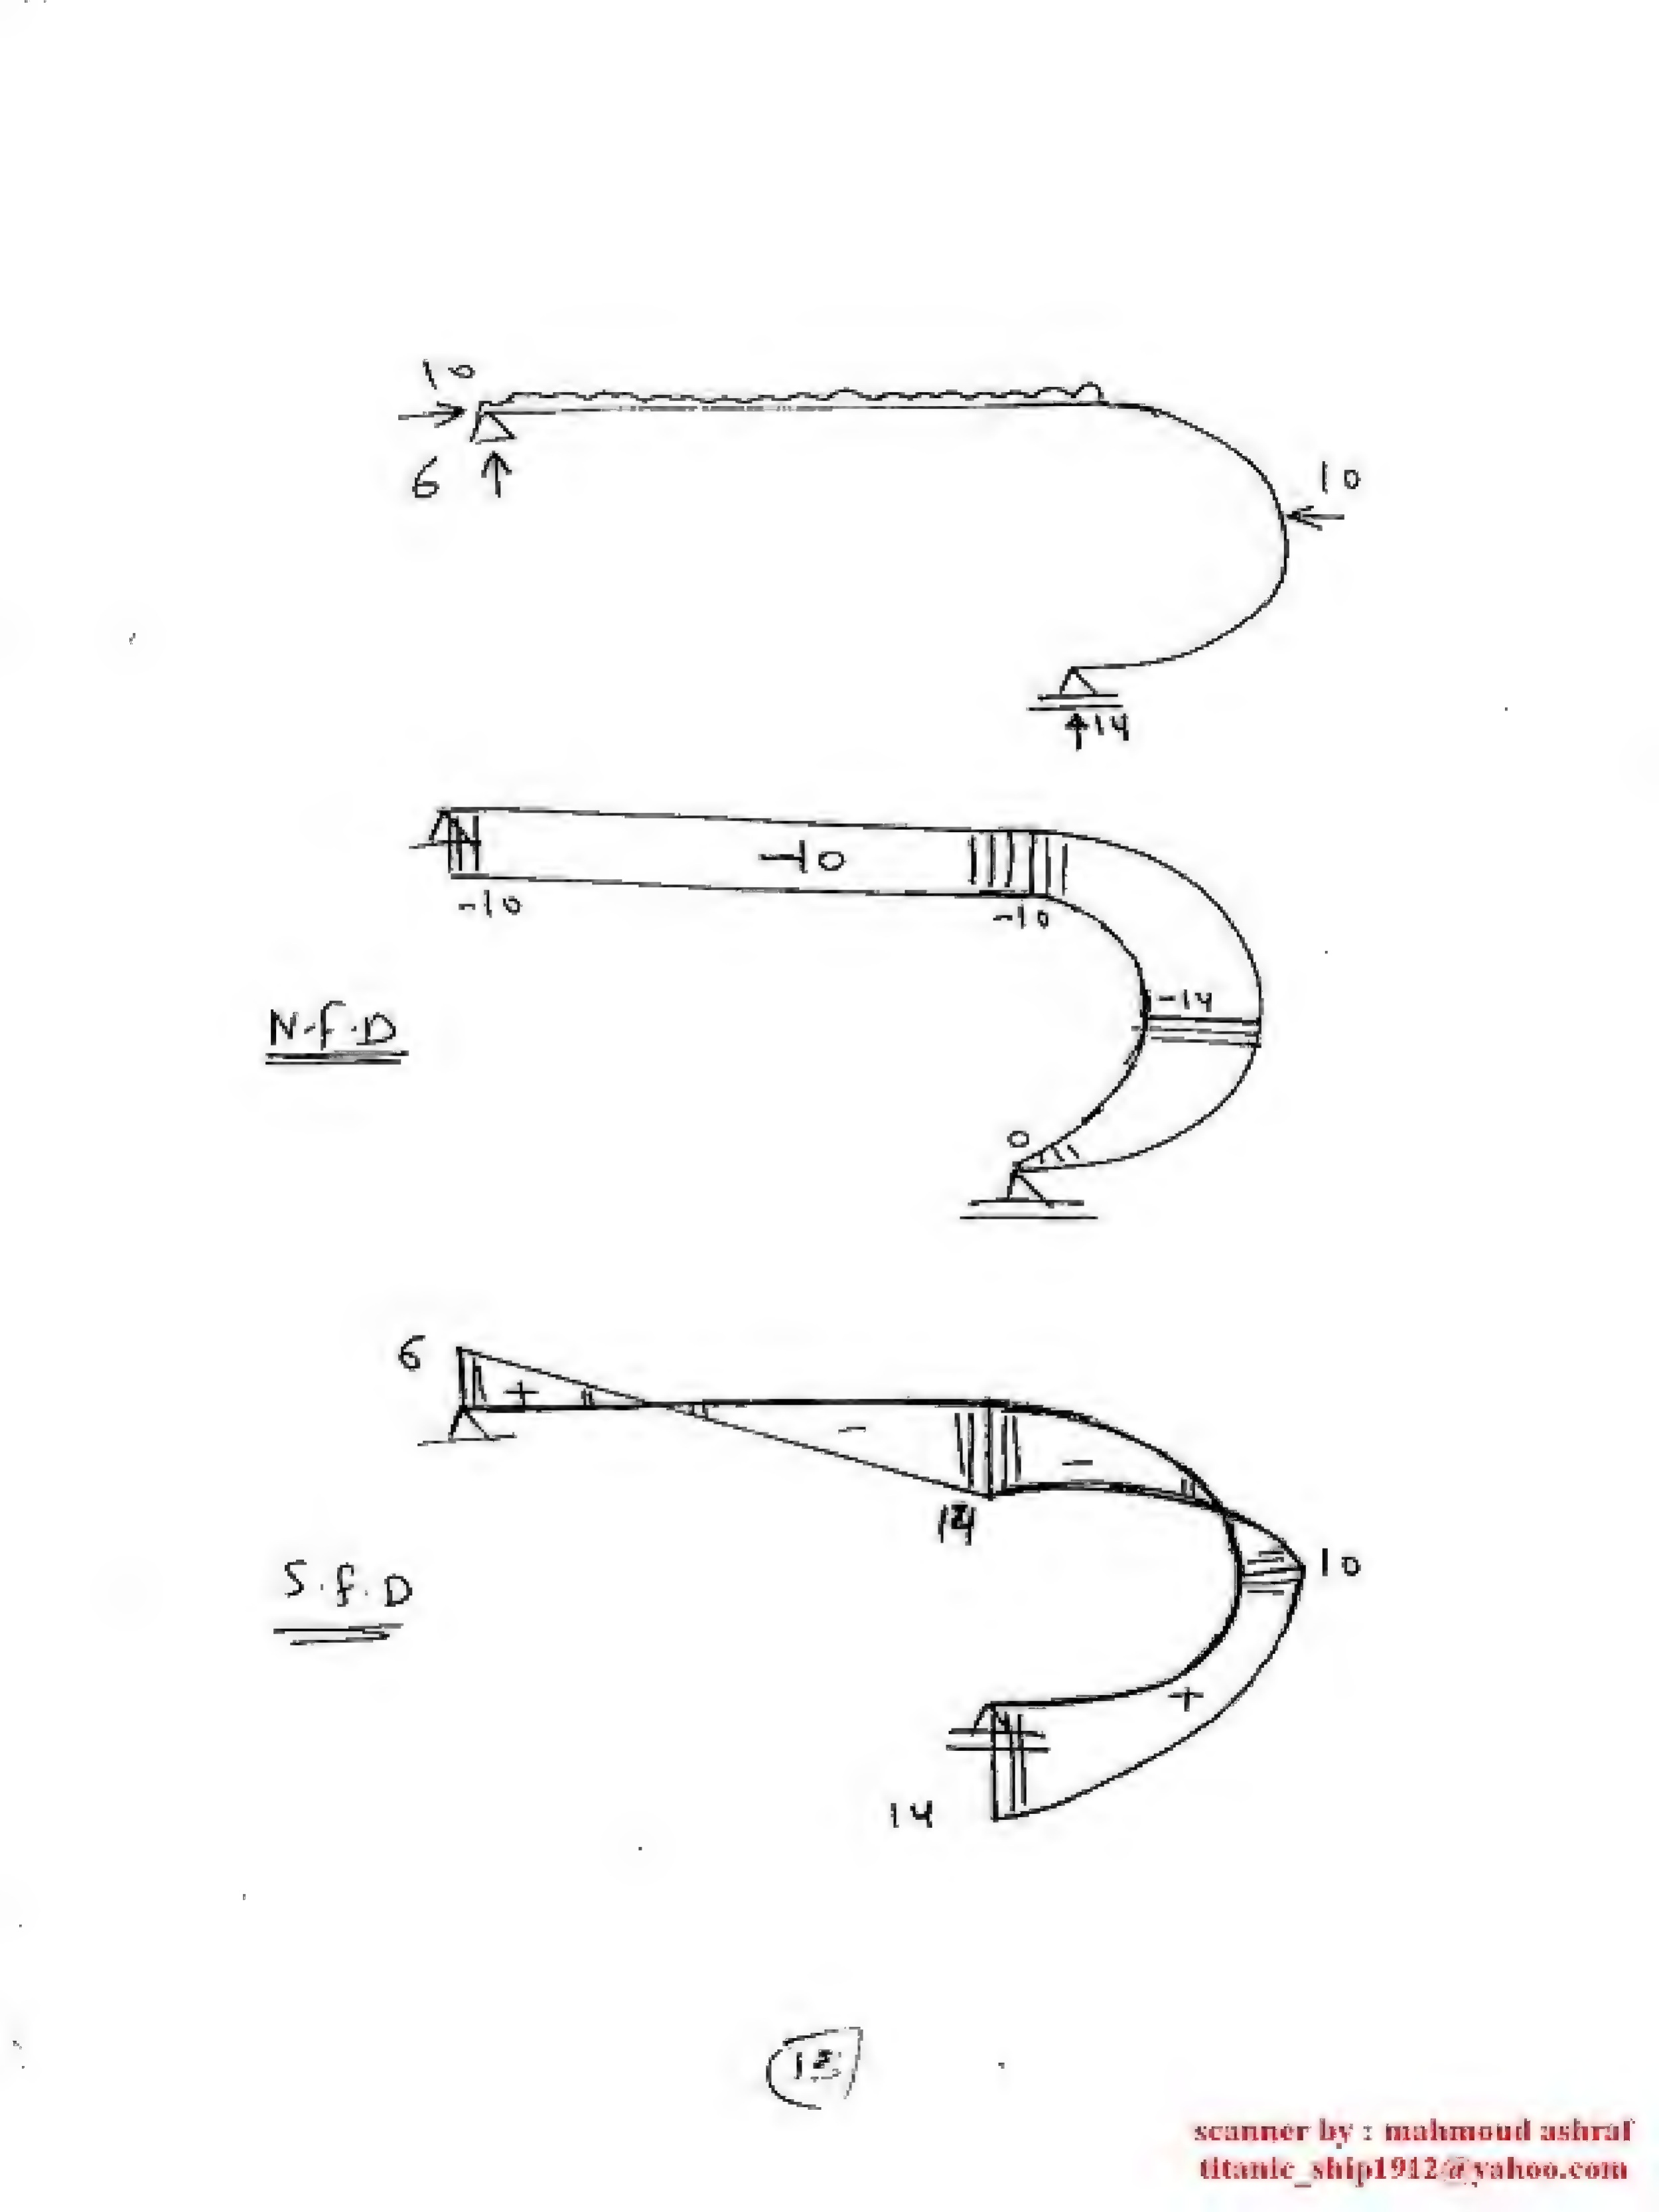 10
6
10
14
-10
-10
-10
-14
N.f.D
0
6
+
-
-
14
10
S.f.D
+
14
scanner by : mahmoud ashraf
titanic_ship1912@yahoo.com